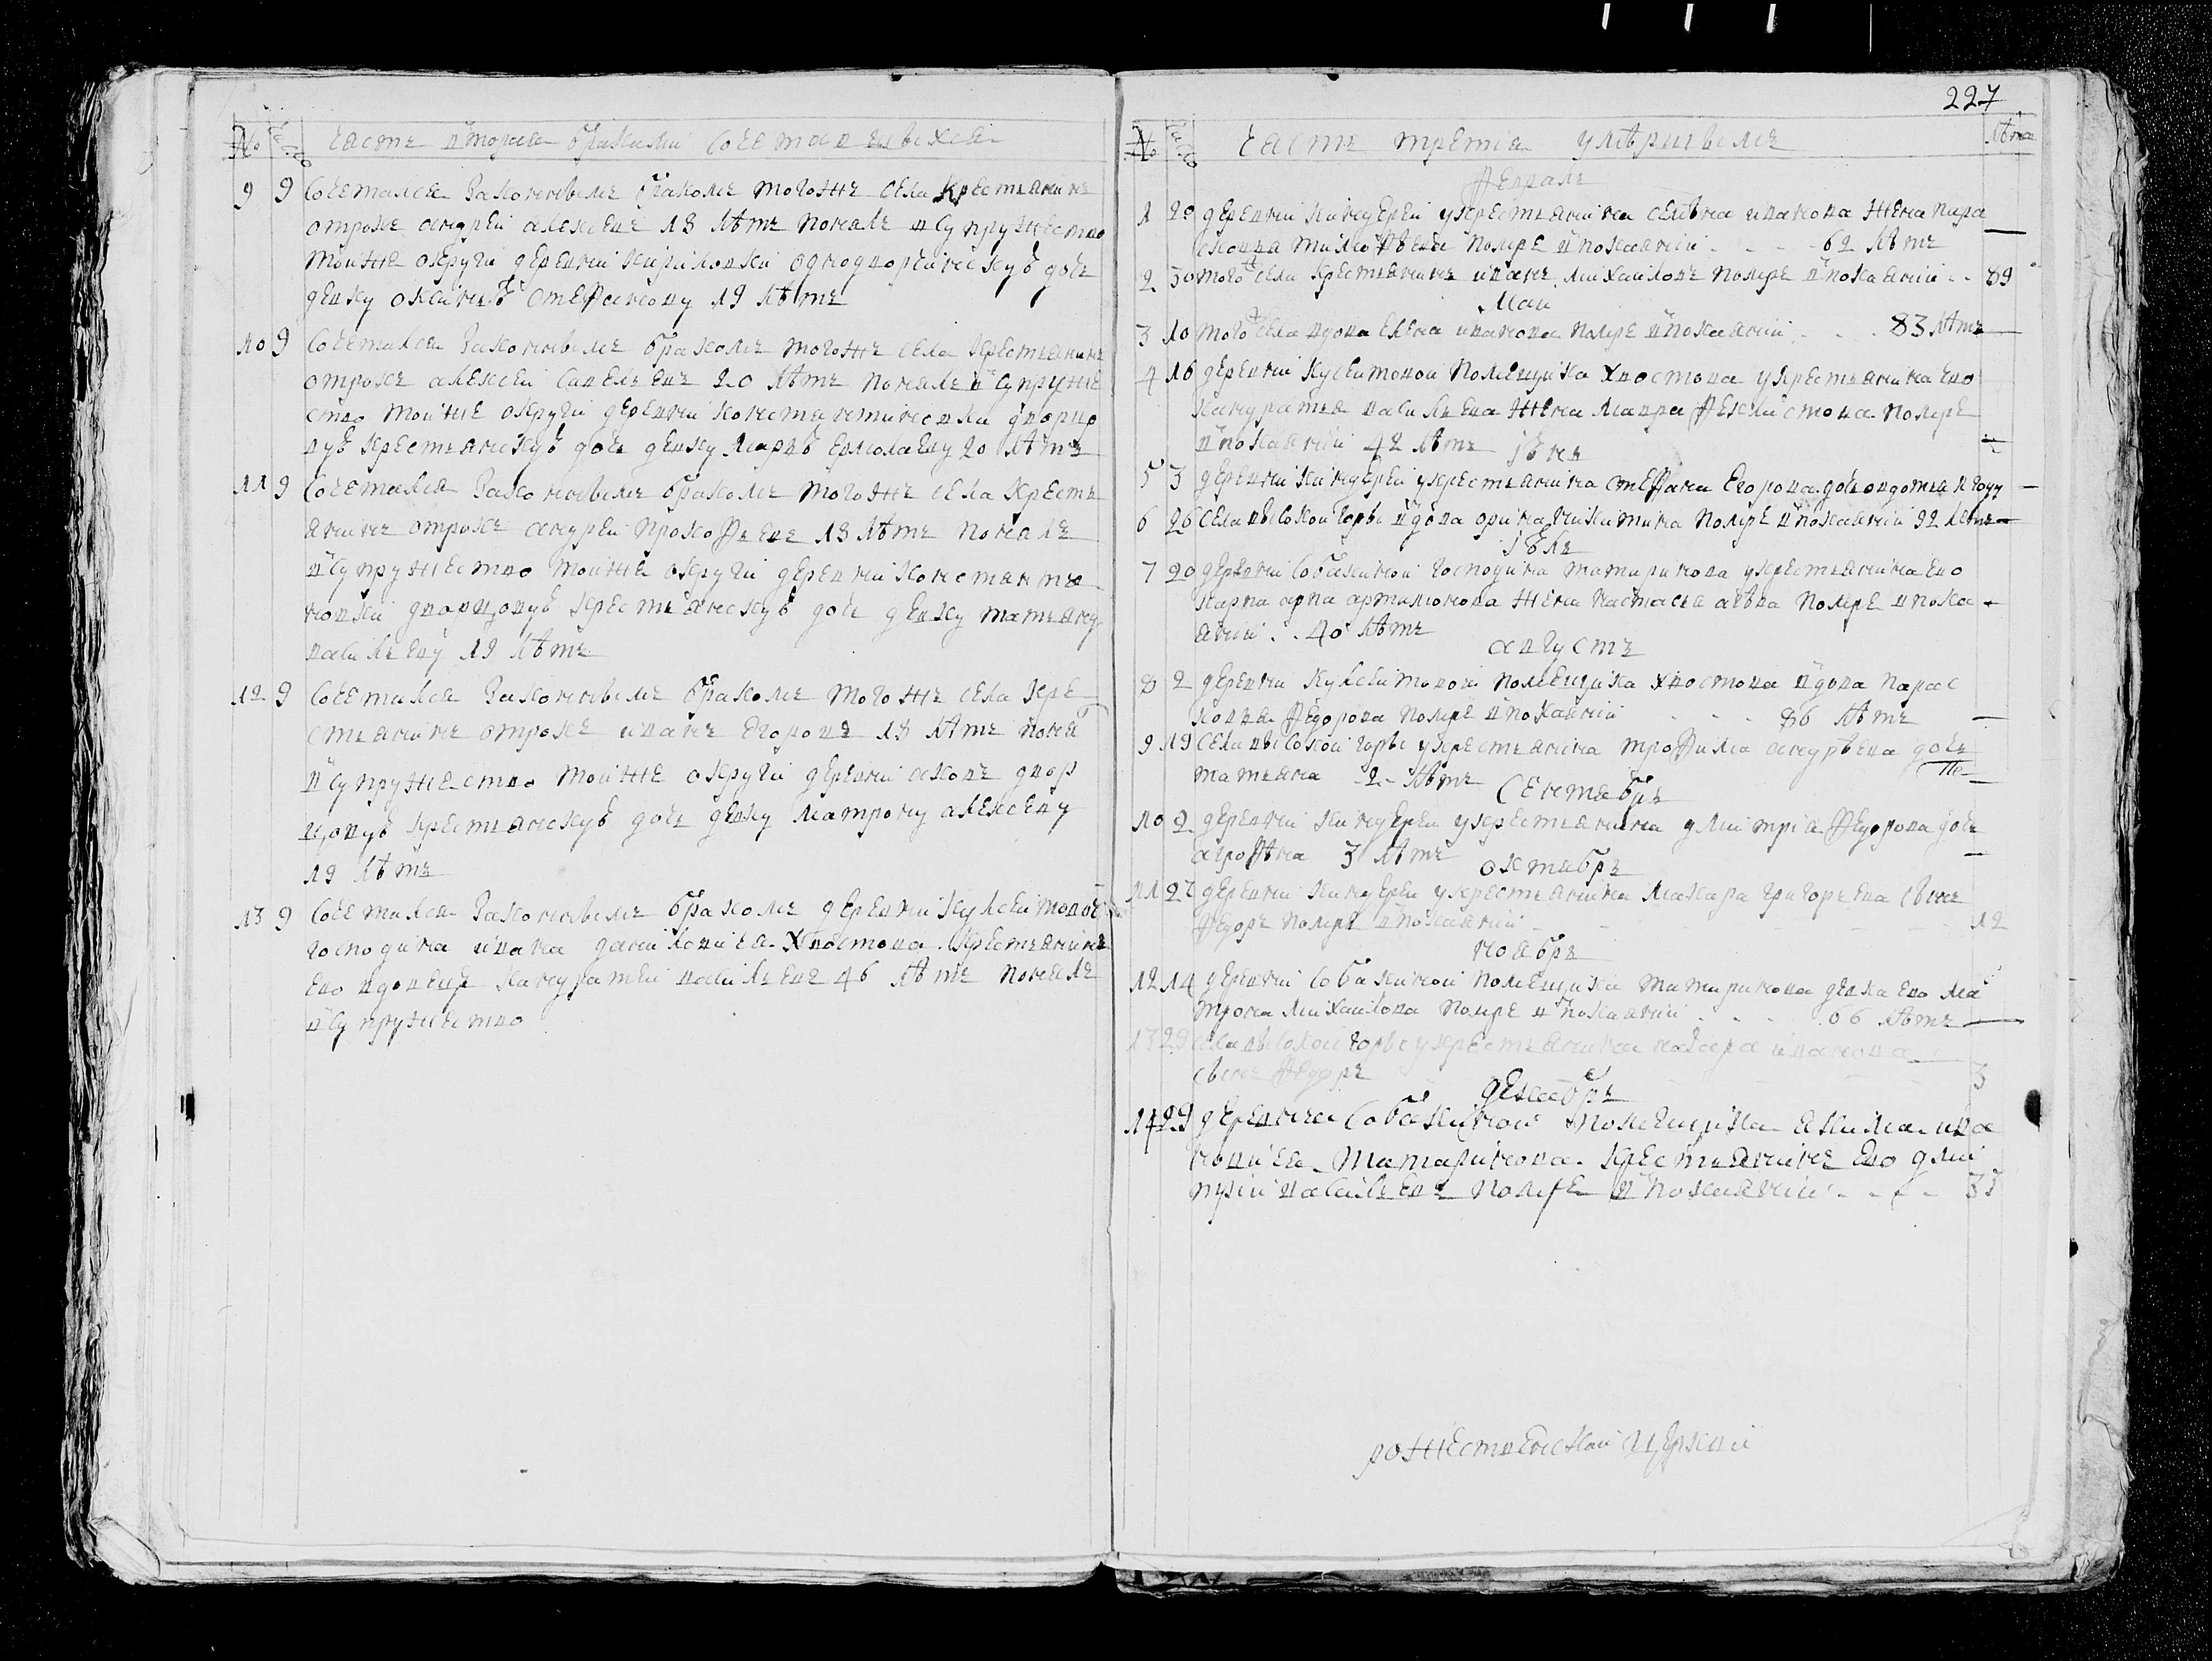 № Число часть вторая браками сочетавшыхся
9 9 Сочетался законнымъ бракомъ тогожъ села крестьянинъ
отрокъ андрей алексеевъ 18 лѣтъ понялъ в супружество
тойже округи деревни кириловки однодворческую дочь
девку оксинью стефанову 19 лѣтъ
10 9 Сочетался законнымъ бракомъ тогожъ села крестьянинъ
отрокъ алексей савельевъ 20 лѣтъ понялъ в супруже
ство тойже округи деревни дворцо
вую крестьянскую дочь девку марфу ермолаеву 20 лѣтъ
11 9 Сочетался законнымъ бракомъ тогожъ села кресть
янинъ отрокъ андрей прокофьевъ 18 лѣтъ понялъ
в супружество тойже округи деревни константи
новки дворцовую крестьянскую дочь девку татьяну
васильеву 19 лѣтъ
12 9 Сочетался законнымъ бракомъ тогожъ села кре
стьянинъ отрокъ иванъ егоровъ 18 лѣтъ понял
в супружество тойже округи деревни двор
цовую крестьянскую дочь девку матрону алексееву
19 лѣтъ
13 9 Сочетался законнымъ бракомъ деревни
господина ивана даниловича хвостова крестьянинъ
ево вдовецъ кандратей васильевъ 46 лѣтъ понялъ
в супружество
227
№ Число часть третия умѣршымъ лѣта
февраль
1 20 деревни киндереи у крестьянина ивана жена пара
сковья тимофѣева помре в покаянии 62 лѣтъ
2 30 того села крестьянинъ иванъ михаиловъ помре в покаянии 89
Маи
3 10 того села вдова елена иванова помре в покаянии 83 лѣтъ
4 16 деревни помещика хвостова у крестьянина ево
кандратья васильева жена мавра феклистова помре
в покаянии 42 лѣтъ
іюнь
5 3 деревни киндереи у крестьянина стефана егорова дочь году
6 26 села высокой горы вдова орина никитина помре в покаянии 92 летъ
іюль
7 20 деревни собакиной господина татаринова у крестьянина ево
карпа артамонова жена настасья помре в пока
янии 40 лѣтъ
августъ
8 2 деревни помещика хвостова вдова парас
ковья федорова помре в покаянии 86 лѣтъ
9 19 села высокой горы у крестьянина трофима андрѣева дочь
татьяна 2 лѣтъ
Сентябрь
10 2 деревни киндереи у крестьянина дмитрия федорова дочь
агрофѣна 3 лѣтъ
октябрь
11 27 деревни киндереи у крестьянина макара григорьева сынъ
федоръ помре в покаянии 12
ноябрь
12 14 деревни собакиной помещика татаринова девка ево ма
трона михаилова помре в покаянии 06 лѣтъ
13 29 села высокой горы у крестьянина назара иванова
сынъ федоръ 3
декабрь
14 29 деревни собакиной помещика акима ива
новича татаринова крестьянинъ ево дми
трий васильевъ помре в покаянии 35
рожественской церкви